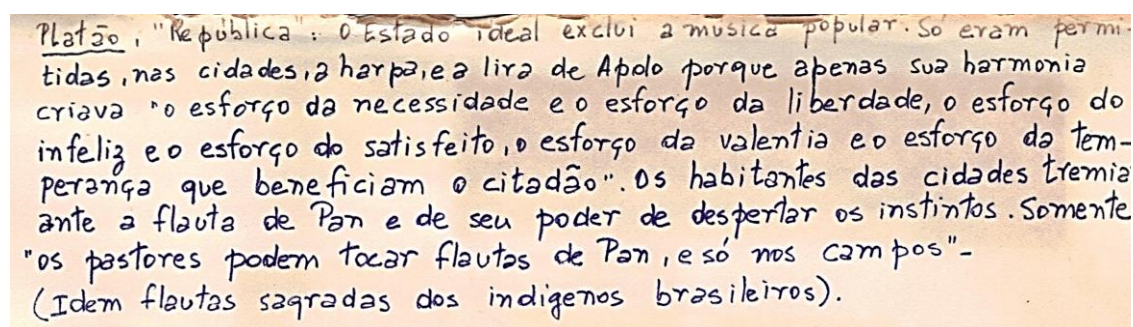 Platão, "República": O Estado ideal exclui a musica popular. Só eram permi-
tidas, nas cidades, a harpa, e a lira de Apolo porque apenas sua harmonia
criava "o esforço da necessidade e o esforço da liberdade, o esforço do
infeliz e o esforço do satisfeito, o esforço da valentia e o esforço da tem-
perança que beneficiam o citadão". Os habitantes das cidades tremia
ante a flauta de Pan e de seu poder de despertar os instintos. Somente
"os pastores podem tocar flautas de Pan, e só nos campos"-
(Idem flautas sagradas dos indigenos brasileiros).